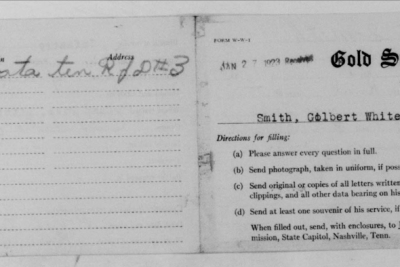 n
Address
ata ten R f D #3
FORM W-W-1
JAN 2 1923 Received
Gold S
Smith, Colbert White
Directions for filling:
(a) Please answer every question in full.
(b) Send photograph, taken in uniform, if poss
(c) Send original or copies of all letters written
clippings, and all other data bearing on his
(d) Send at least one souvenir of his service, if
When filled out, send, with enclosures, to J
mission, State Capitol, Nashville, Tenn.